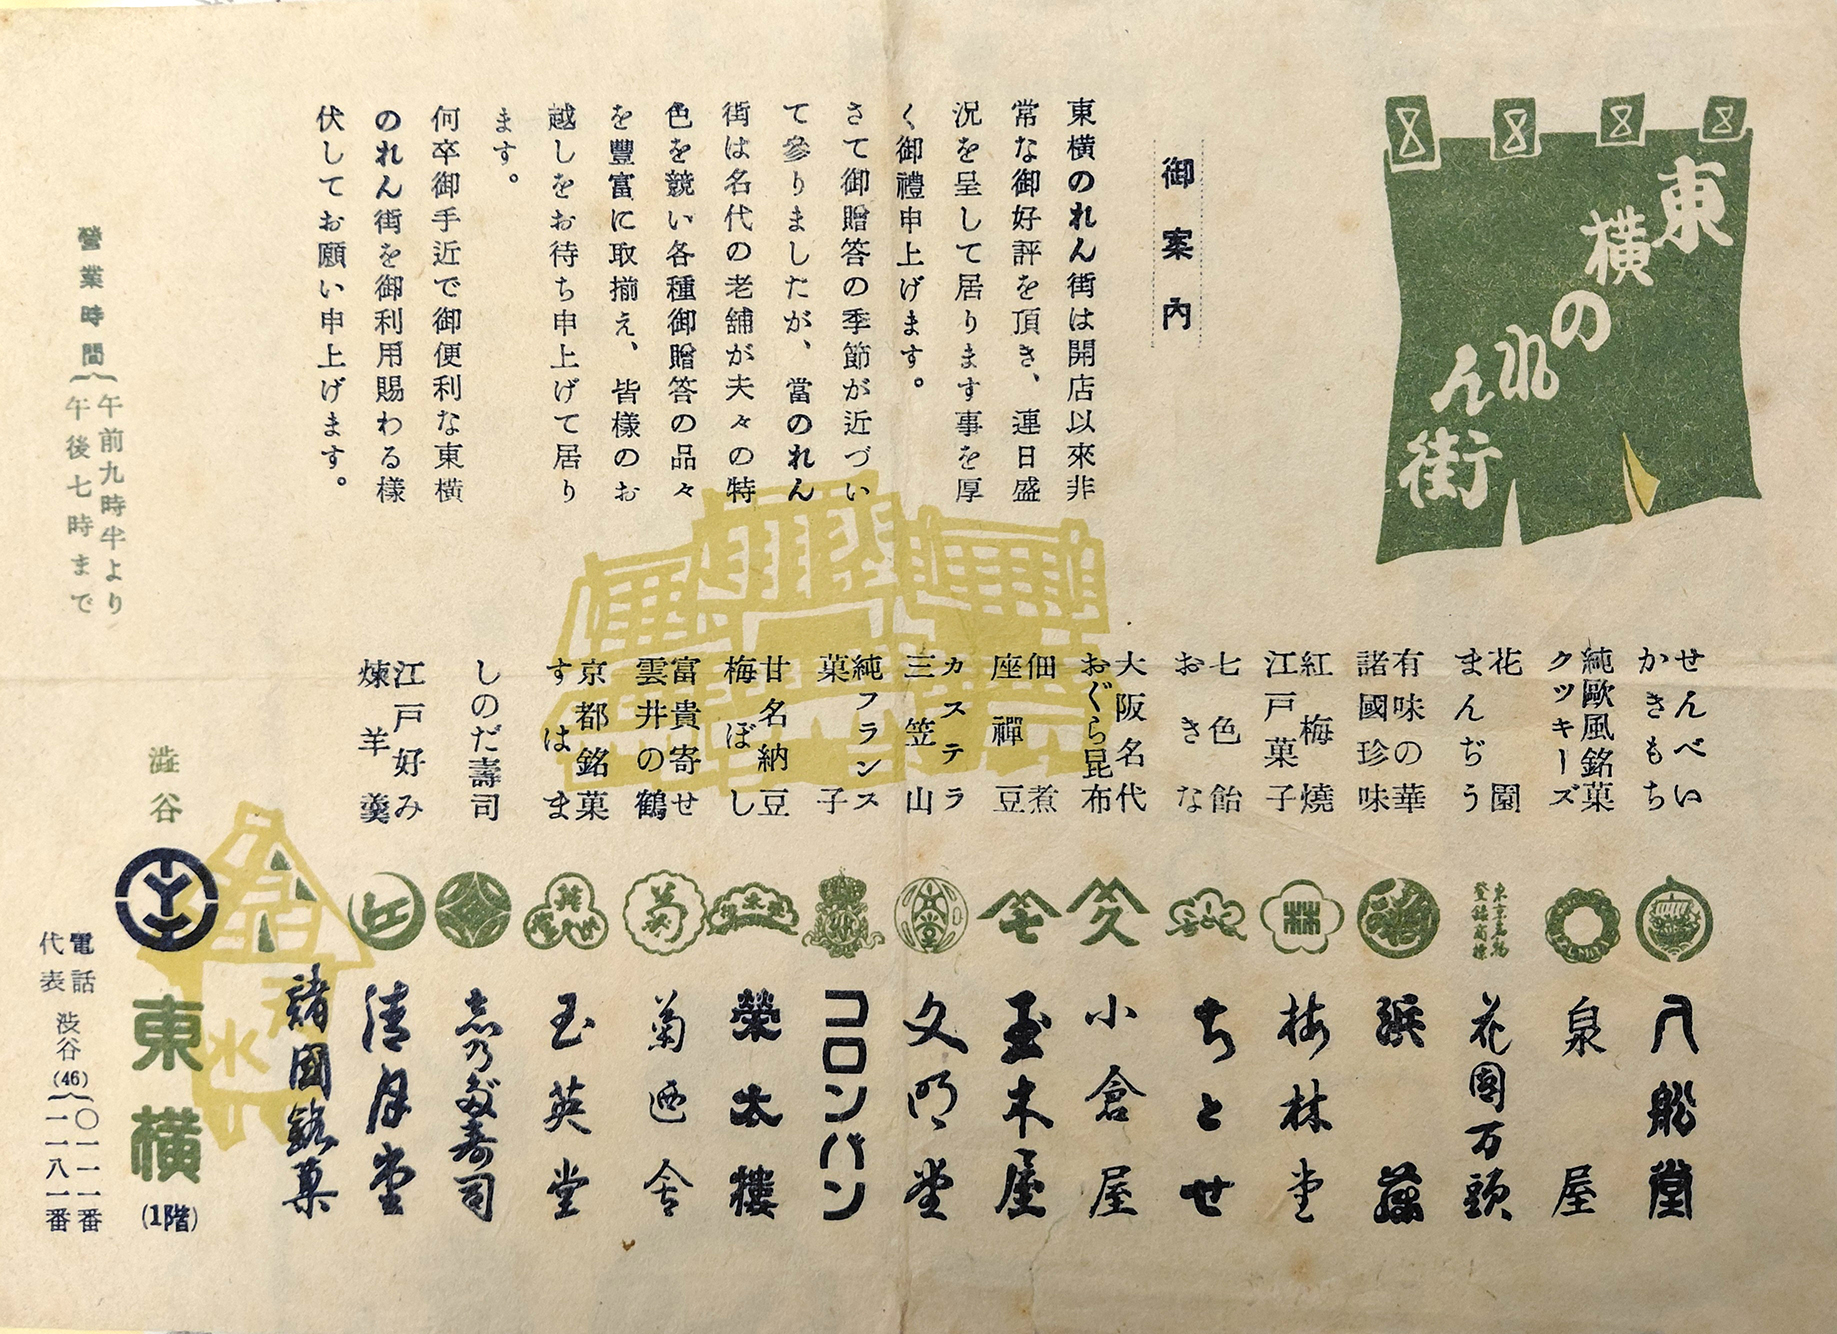 東横のれん街
御案内
東横のれん街は開店以來非
常な御好評を頂き、連日盛
況を呈して居ります事を厚
く御禮申上げます。
さて御贈答の季節が近づい
て參りましたが、當のれん
街は名代の老舗が夫々の特
色を競い各種御贈答の品々
を豐富に取揃え、皆樣のお
越しをお待ち申上げて居り
ます。
何卒御手近で御便利な東横
のれん街を御利用賜わる樣
伏してお願い申上げます。
營業時間
午前九時半より
午後七時まで
せんべい
かきもち
八船堂
純歐風銘菓
クッキーズ
泉屋
花園
まんぢう
東京名物
登錄商標
花園万頭
有味の華
諸國珍味
浜藤
紅梅燒
江戸菓子
梅林堂
七色飴
おきな
ちとせ
大阪名代
おぐら昆布
小倉屋
佃煮
座禪豆
玉木屋
カステラ
三笠山
文明堂
純フランス
菓子
コロンバン
甘名納豆
梅ぼし
榮太樓
富貴寄せ
雲井の鶴
菊廼舍
京都銘菓
すはま
玉英堂
しのだ壽司
志乃多寿司
江戸好み
煉羊羹
清月堂
諸國銘菓
澁谷
東横
(1階)
電話
代表
渋谷(46)
〇一一一番
一一八一番